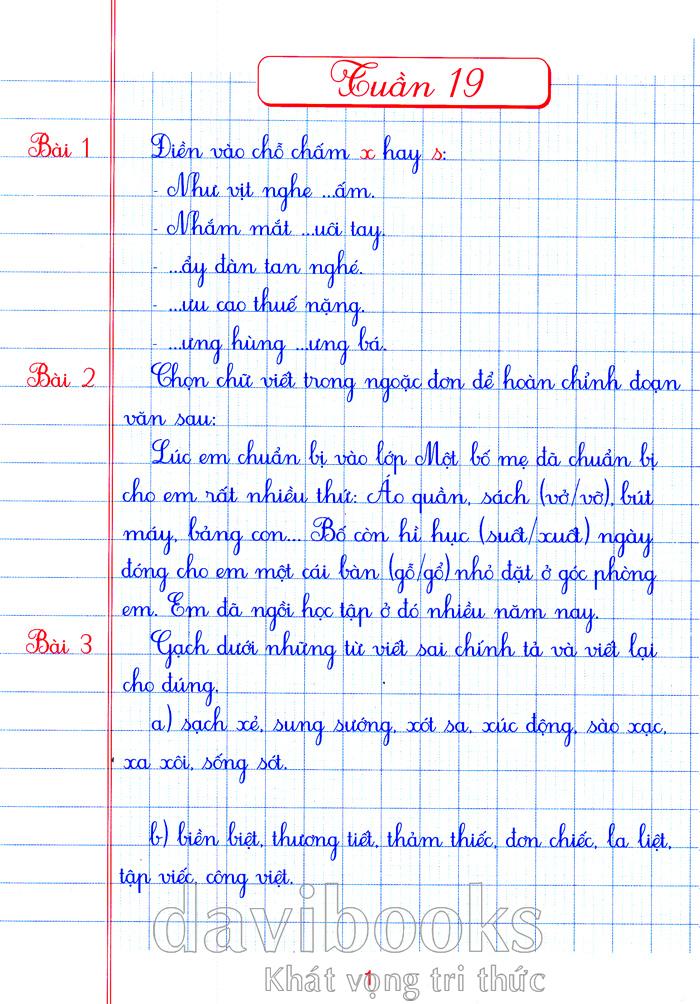 Tuần 19
Bài 1 Điền vào chỗ chấm x hay s:
- Như vịt nghe ...ấm.
- Nhắm mắt ...uôi tay.
- ...ẩy đàn tan nghé.
- ...ưu cao thuế nặng.
- ...ưng hùng ...ưng bá.
Bài 2 Chọn chữ viết trong ngoặc đơn để hoàn chỉnh đoạn
văn sau:
Lúc em chuẩn bị vào lớp Một bố mẹ đã chuẩn bị
cho em rất nhiều thứ: Áo quần, sách (vở/vỡ), bút
máy, bảng con... Bố còn hì hục (suốt/xuốt) ngày
đóng cho em một cái bàn (gỗ/gổ) nhỏ đặt ở góc phòng
em. Em đã ngồi học tập ở đó nhiều năm nay.
Bài 3 Gạch dưới những từ viết sai chính tả và viết lại
cho đúng.
a) sạch xẻ, sung sướng, xót sa, xúc động, sào xạc,
xa xôi, sống sót.
b) biền biệt, thương tiết, thảm thiếc, đơn chiếc, la liệt,
tập viếc, công việt.
davibooks
Khát vọng tri thức
1